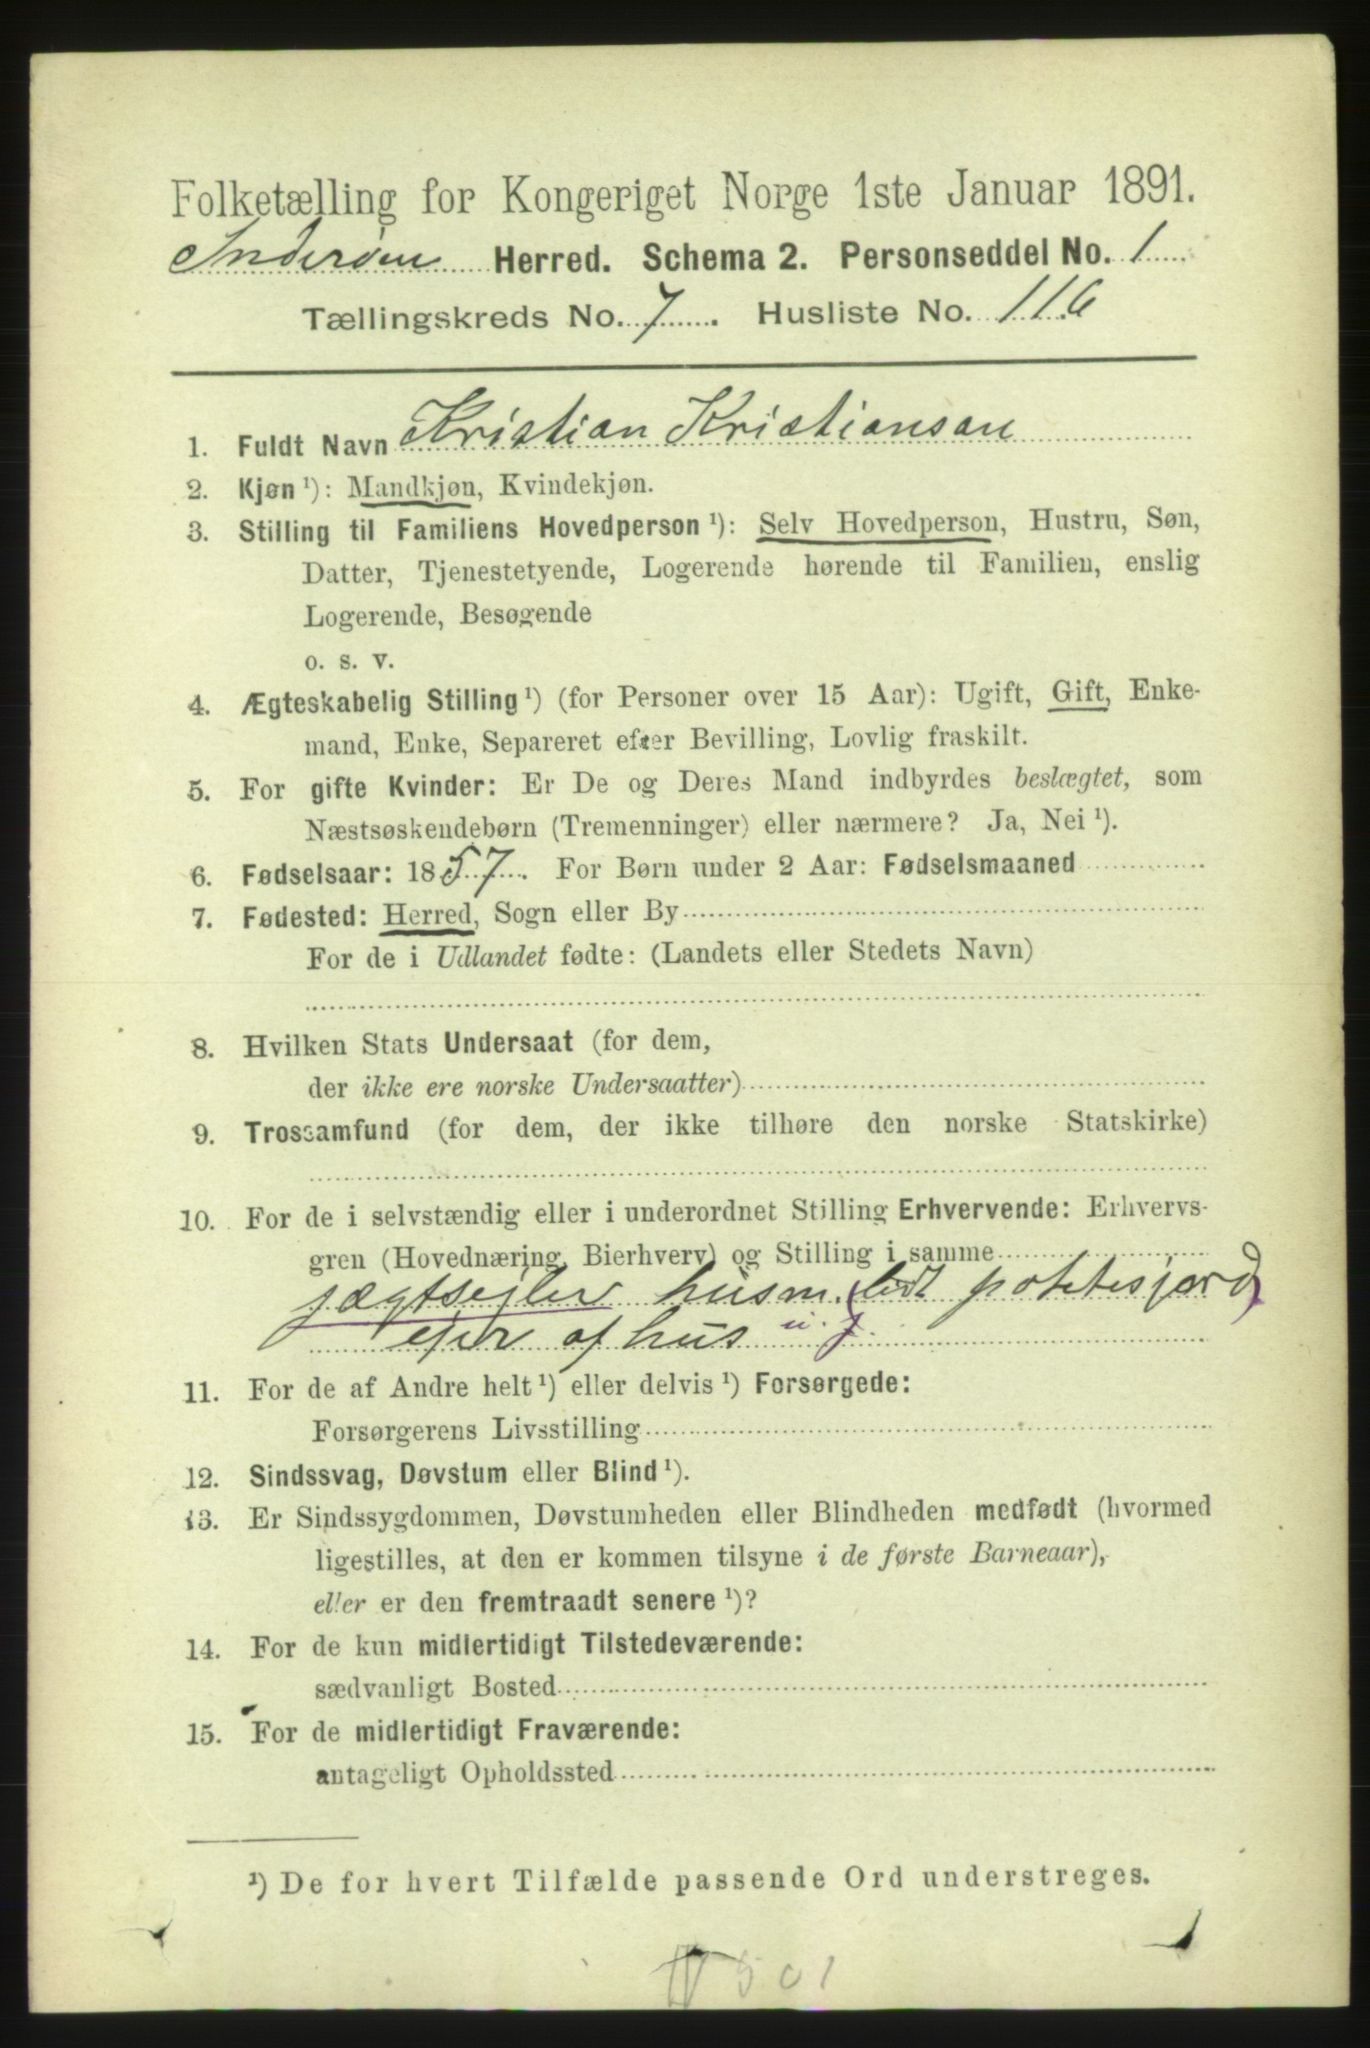 Folketælling for Kongeriget Norge 1ste Januar 1891.
Inderøen Herred. Schema 2. Personseddel No. 1
Tællingskreds No. 7. Husliste No. 116
1. Fuldt Navn Kristian Kristiansen
2. Kjøn ¹): Mandkjøn, Kvindekjøn.
3. Stilling til Familiens Hovedperson ¹): Selv Hovedperson, Hustru, Søn,
Datter, Tjenestetyende, Logerende hørende til Familien, enslig
Logerende, Besøgende
o. s. v.
4. Ægteskabelig Stilling ¹) (for Personer over 15 Aar): Ugift, Gift, Enke-
mand, Enke, Separeret efter Bevilling, Lovlig fraskilt.
5. For gifte Kvinder: Er De og Deres Mand indbyrdes beslægtet, som
Næstsøskendebørn (Tremenninger) eller nærmere? Ja, Nei ¹).
6. Fødselsaar: 1857. For Børn under 2 Aar: Fødselsmaaned
7. Fødested: Herred, Sogn eller By
For de i Udlandet fødte: (Landets eller Stedets Navn)
8. Hvilken Stats Undersaat (for dem,
der ikke ere norske Undersaatter)
9. Trossamfund (for dem, der ikke tilhøre den norske Statskirke)
10. For de i selvstændig eller i underordnet Stilling Erhvervende: Erhvervs-
gren (Hovednæring, Bierhverv) og Stilling i samme
jægtsejler husm. (lidt potetesjord)
ejer af hus u. j.
11. For de af Andre helt ¹) eller delvis ¹) Forsørgede:
Forsørgerens Livsstilling
12. Sindssvag, Døvstum eller Blind ¹).
13. Er Sindssygdommen, Døvstumheden eller Blindheden medfødt (hvormed
ligestilles, at den er kommen tilsyne i de første Barneaar),
eller er den fremtraadt senere ¹)?
14. For de kun midlertidigt Tilstedeværende:
sædvanligt Bosted
15. For de midlertidigt Fraværende:
antageligt Opholdssted
¹) De for hvert Tilfælde passende Ord understreges.
501